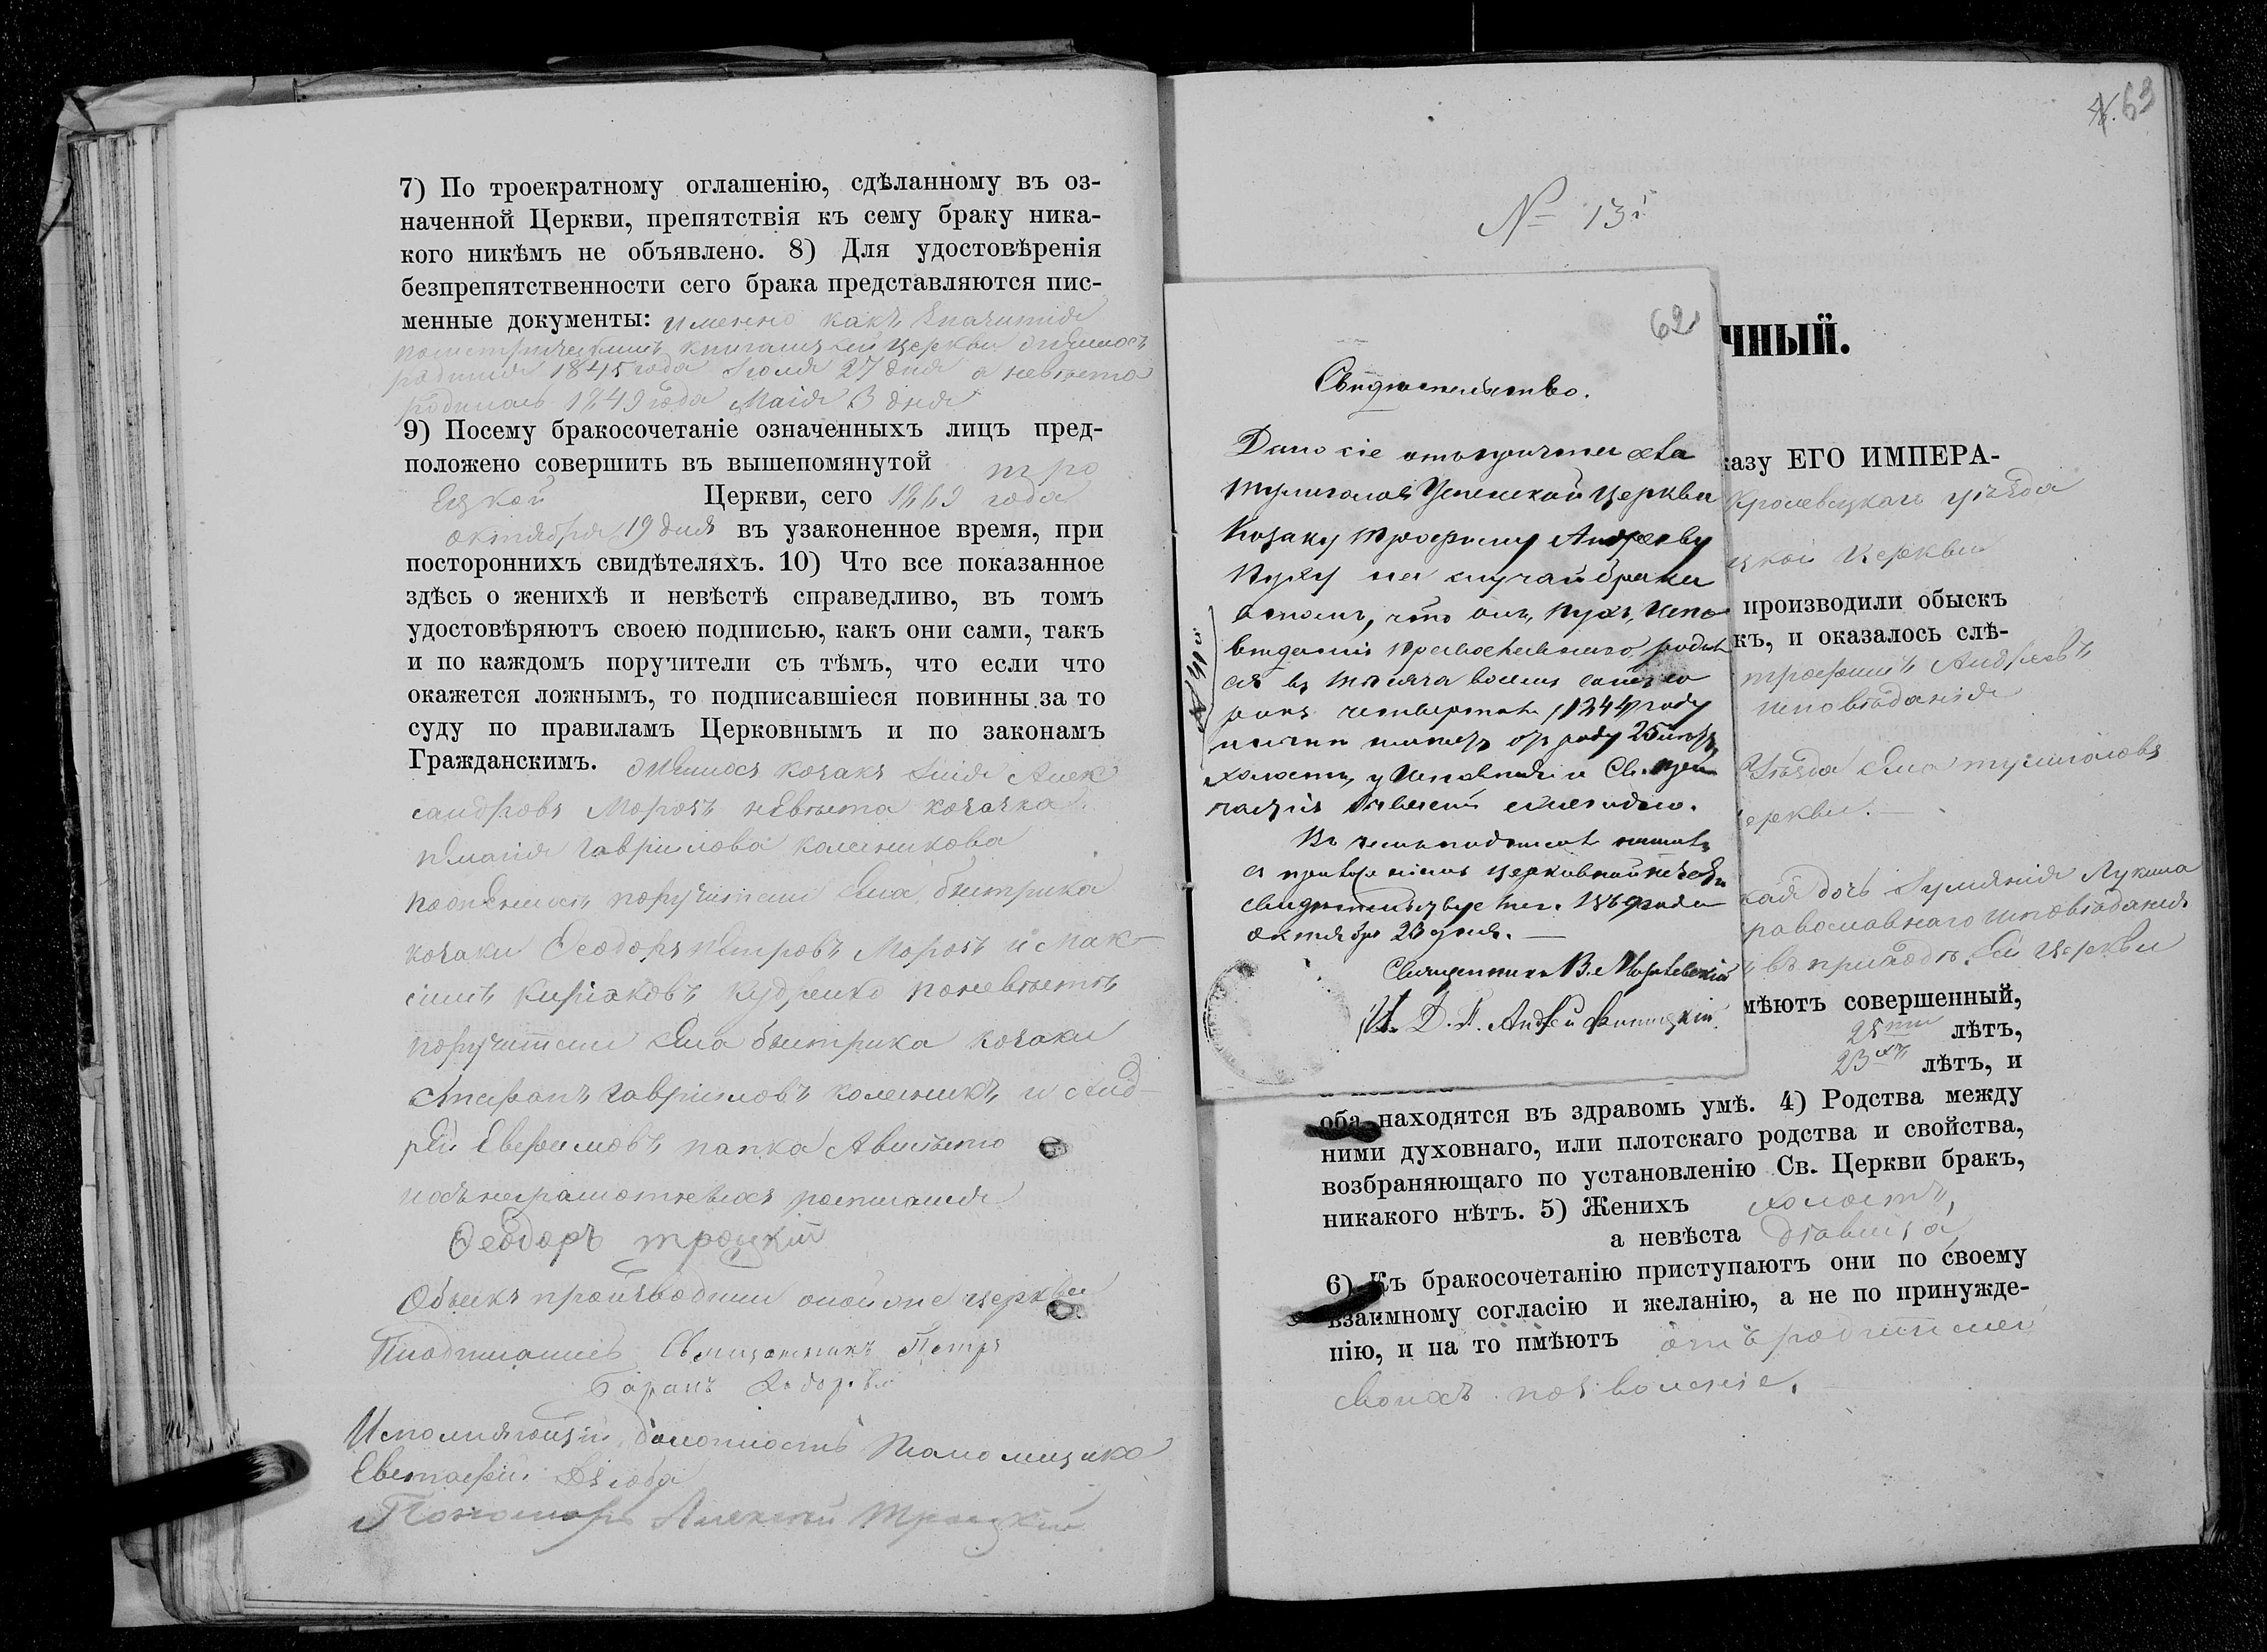 7) По троекратному оглашенію, сдѣланному въ оз-
наченной Церкви, препятствія къ сему браку ника-
кого никѣмъ не объявлено. 8) Для удостовѣренія
безпрепятственности сего брака представляются пис-
менные документы: именно какъ значитця
книгамъ сей церкви
родился 1845 года 27 дня а невѣста
родилась 1849 года Маія 3 дня
9) Посему бракосочетаніе означенныхъ лицъ пред-
положено совершить въ вышепомянутой тро
ецкой Церкви, сего 1869 года
октября 19 дня въ узаконенное время, при
постороннихъ свидѣтеляхъ. 10) Что все показанное
здѣсь о женихѣ и невѣстѣ справедливо, въ томъ
удостовѣряютъ своею подписью, какъ они сами, такъ
и по каждомъ поручители съ тѣмъ, что если что
окажется ложнымъ, то подписавшіеся повинны за то
суду по правиламъ Церковнымъ и по законамъ
Гражданскимъ. козакъ Илія Алек
сандровъ Морозъ невѣста козачка
Гаврилова Колесникова
поручители села быстрика
козаки Ѳеодоръ Петровъ Морозъ и Мак
симъ Киріяковъ Кудренко по невѣстѣ
поручители села быстрика козаки
Стефанъ Гавриловъ Колесникъ и Анд
рей Евфимовъ папка
Ѳеодоръ Троцкій
Обыскъ производили оной же церкви
Священникъ Петръ
Исполняющій должность Псаломщика
Евстафій Дзюба
Пономарь Алексѣй Троцкій
№ 13
63
62
Свидѣтельство.
Дано сіе отъ причта села
Тулиголовъ Успенской Церкви
Козаку Трофиму Андрееву
Пуху на случай брака
в томъ, что онъ, Пухъ, испо
вѣданія православнаго родил
ся в тысяча восемь сотъ со
рокъ четвертомъ /1844/ году
холостъ, у Исповѣди и Св. При
частія бываетъ ежегодно.
Въ чемъ подписомъ нашимъ
с приложеніемъ церковной печати
свидѣтельствуемъ. 1869 года
октября 23 дня.
Священникъ В.
И. Д. П. Андрей
чный.
казу ЕГО ИМПЕРА-
Кролевецкаго уѣзда
цкой Церкви
производили обыскъ
къ, и оказалось слѣ-
трофимъ Андреевъ
исповѣданія
Уѣзда села тулиголовъ
еркви.
кая дочь Лукина
равославнаго исповѣданія
въ приходѣ сей церкви
мѣютъ совершенный,
25ти лѣтъ,
23хъ лѣтъ, и
оба находятся въ здравомь умѣ. 4) Родства между
ними духовнаго, или плотскаго родства и свойства,
возбраняющаго по установленію Св. Церкви бракъ,
никакого нѣтъ. 5) Женихъ холостъ,
а невѣста дѣвица
6) Къ бракосочетанію приступаютъ они по своему
взаимному согласію и желанію, а не по принужде-
нію, и на то имѣютъ отъ родителей
своихъ позволеніе.